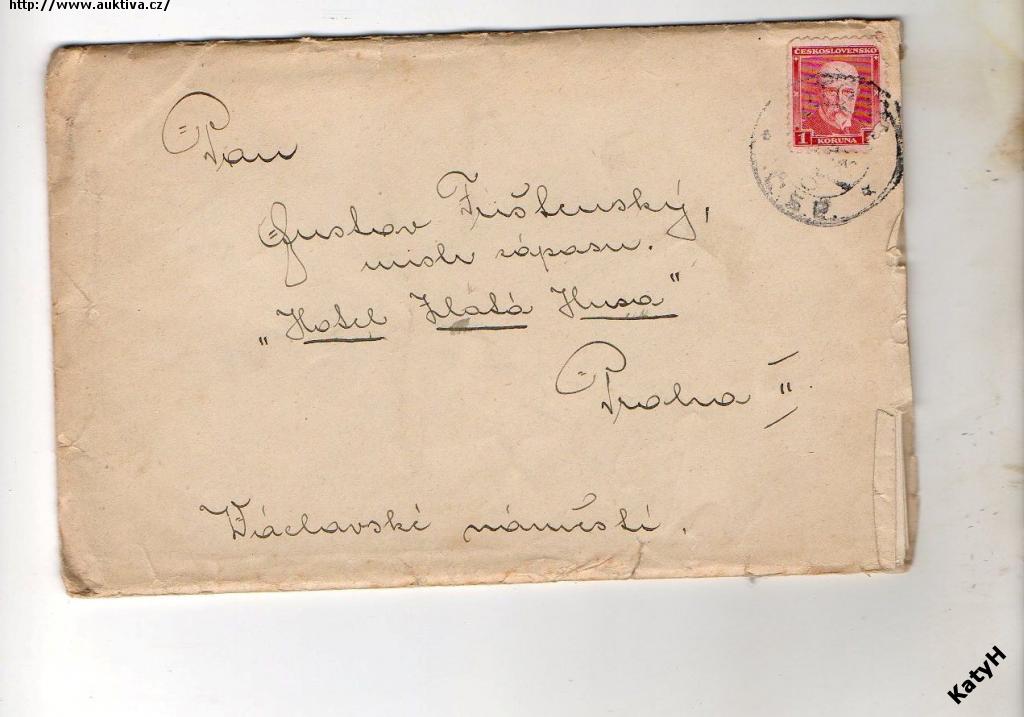 http://www.auktiva.cz/
ČESKOSLOVENSKO
1 KORUNA
Pan
Gustav Frištenský,
mistr zápasu.
„Hotel Zlatá Husa“
Praha II.
Václavské náměstí.
KatyH